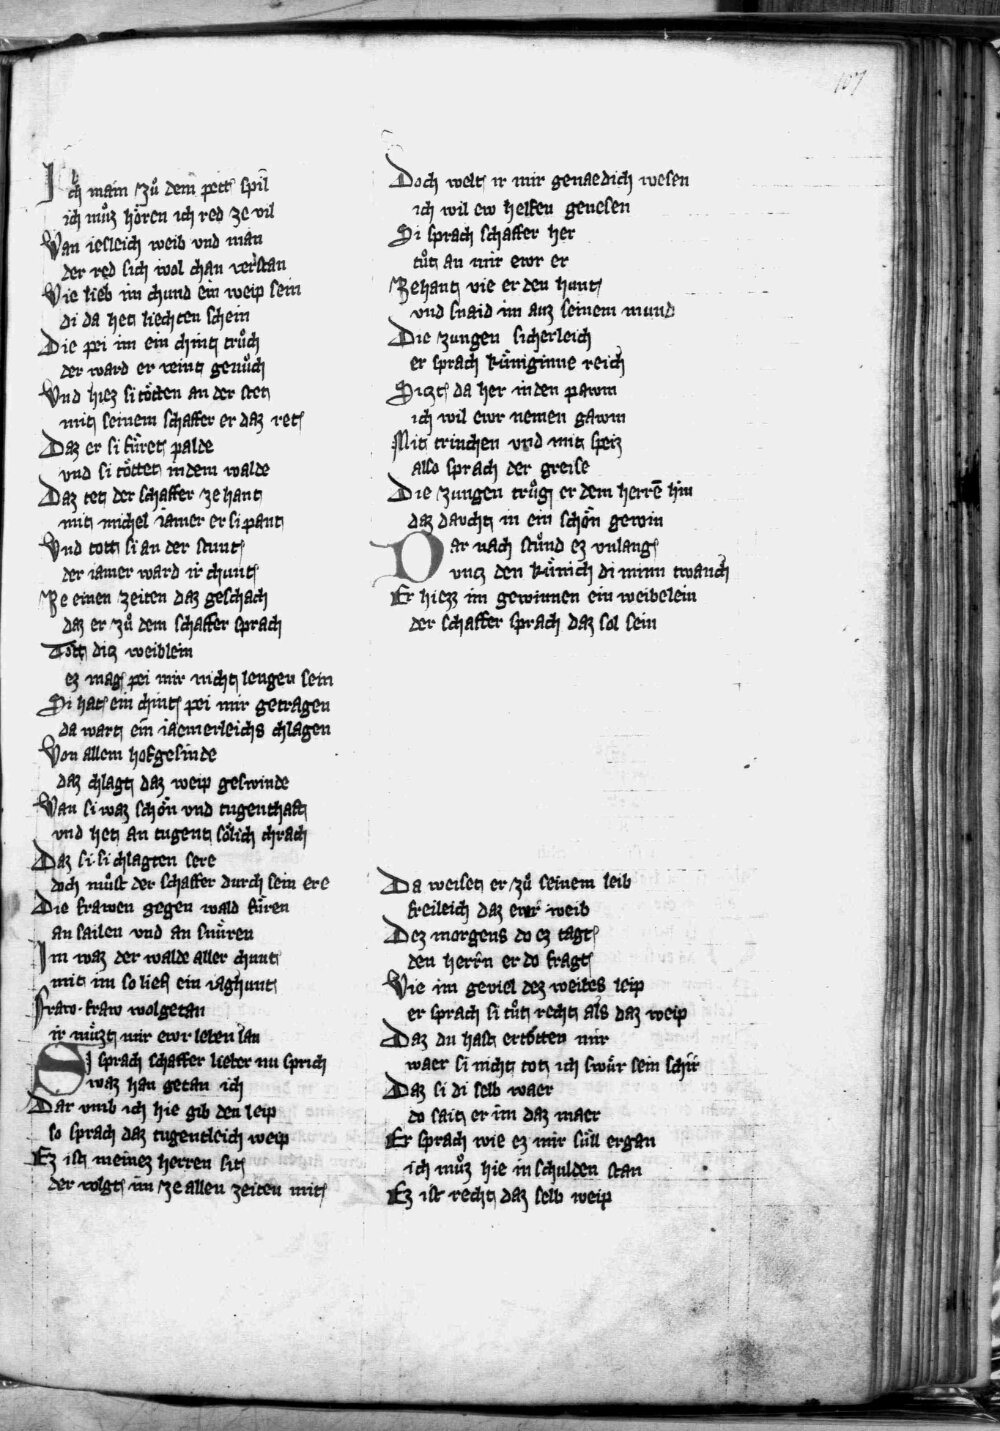 107
Ich main zuͦ dem pett spil
ich muͦz hoͤren ich red ze vil
Wan iesleich weib vnd man
der red sich wol chan verstan
Wie lieb im chund ein weip sein
di da het liechten schein
Die pei im ein chint truͦch
der ward er veint genuͦch
Vnd hiez si toͤtten an der stet
mit seinem schaffer er daz ret
Daz er si fuͤret palde
vnd si toͤttet in dem walde
Daz tet der schaffer ze hant
mit michel iamer er si pant
Vnd tott si an der stunt
der iamer ward ir chunt
Ze einen zeiten daz geschach
daz er zuͦ dem schaffer sprach
Toͤtt ditz weiblein
ez mag pei mir nicht lenger sein
Si hat ein chint pei mir getragen
da wart ein iaemerleichs chlagen
Von allem hofgesinde
daz chlagt daz weip geswinde
Wan si waz schoͤn vnd tugenthaft
vnd het an tugent soͤlich chrach
Daz si si chlagten sere
doch muͦst der schaffer durch sein ere
Die frawen gegen wald fuͤren
an sailen vnd an snuͤren
Im waz der walde aller chunt
mit im so lief ein iaghunt
Fraw fraw wolgetan
ir muͤzt mir ewr leben lan
Si sprach schaffer lieber nu sprich
waz han getan ich
Dar vmb ich hie gib den leip
so sprach daz tugentleich weip
Ez ist meinez herren sit
der volgt im ze allen zeiten mit
Doch welt ir mir genaedich wesen
ich wil ew helfen genesen
Si sprach schaffer her
tuͦt an mir ewr er
Zehant vie er den hunt
vnd snaid im auz seinem mund
Die zungen sicherleich
er sprach kuͤniginne reich
Sitzt da her in den pawm
ich wil ewr nemen gawm
Mit trinchen vnd mit speiz
also sprach der greise
Die zungen truͦg er dem herrē hin
daz daucht in ein schoͤn gewin
Dar nach stuͦnd ez vnlang
vntz den kuͤnich di minn twanch
Er hiezz im gewinnen ein weibelein
der schaffer sprach daz sol sein
Da weiset er zuͦ seinem leib
freileich daz ewr weib
Dez morgens do ez tagt
den herrn er do fragt
Wie im geviel dez weibes leip
er sprach si tuͦt recht als daz weip
Daz du hast ertoͤtten mir
waer si nicht tot ich swuͤr sein schir
Daz si di selb waer
do sait er im daz maer
Er sprach wie ez mir suͤll ergan
ich muͦz hie in schulden stan
Ez ist recht daz selb weip